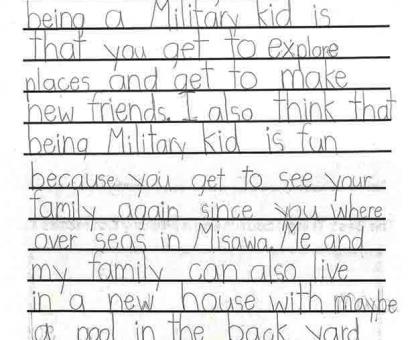 being a Military kid is
that you get to explore
places and get to make
new friends. I also think that
being Military kid is fun
because you get to see your
family again since you where
over seas in Misawa. Me and
my family can also live
in a new house with maybe
a pool in the back yard